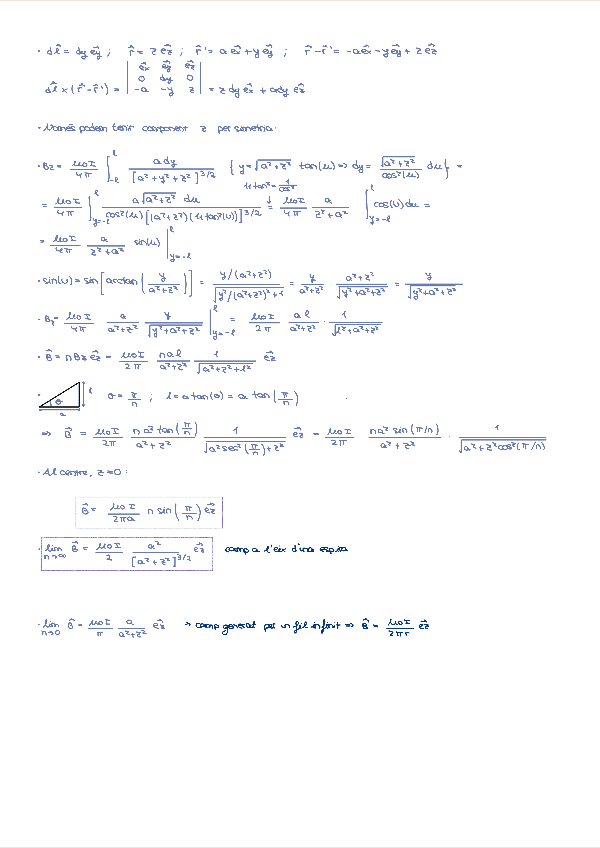 · dl⃗ = dy e⃗y ; r⃗ = z e⃗z ; r⃗' = a e⃗x + y e⃗y ; r⃗ - r⃗' = -a e⃗x - y e⃗y + z e⃗z
dl⃗ × (r⃗ - r⃗') = | e⃗x e⃗y e⃗z ; 0 dy 0 ; -a -y z | = z dy e⃗x + a dy e⃗z
· Només podem tenir component z per simetria:
· Bz = μ0 I / 4π ∫_{-l}^{l} a dy / [a² + y² + z²]^{3/2} { y = √(a²+z²) tan(u) => dy = √(a²+z²) / cos²(u) du } =
1+tan² = 1/cos²
= μ0 I / 4π ∫_{y=-l}^{l} a √(a²+z²) du / cos²(u) [(a²+z²)(1+tan²(u))]^{3/2} = μ0 I / 4π a / z²+a² ∫_{y=-l}^{l} cos(u) du =
= μ0 I / 4π a / z²+a² sin(u) |_{y=-l}^{l}
· sin(u) = sin[arctan(y / a²+z²)] = y/(a²+z²) / √(y²/(a²+z²)²+1) = y / a²+z² a²+z² / √(y²+a²+z²) = y / √(y²+a²+z²)
· Bz = μ0 I / 4π a / a²+z² y / √(y²+a²+z²) |_{y=-l}^{l} = μ0 I / 2π a l / a²+z² · 1 / √(l²+a²+z²)
· B⃗ = n Bz e⃗z = μ0 I / 2π n a l / a²+z² 1 / √(a²+z²+l²) e⃗z
· θ l a θ = π/n ; l = a tan(θ) = a tan(π/n)
=> B⃗ = μ0 I / 2π n a² tan(π/n) / a²+z² 1 / √(a² sec²(π/n)+z²) e⃗z = μ0 I / 2π n a² sin(π/n) / a²+z² · 1 / √(a²+z² cos²(π/n))
· Al centre, z=0:
B⃗ = μ0 I / 2πa n sin(π/n) e⃗z
· lim_{n→∞} B⃗ = μ0 I / 2 a² / [a²+z²]^{3/2} e⃗z camp a l'eix d'una espira
· lim_{n→0} B⃗ = μ0 I / π a / a²+z² e⃗z → camp generat per un fil infinit => B⃗ = μ0 I / 2πr e⃗z